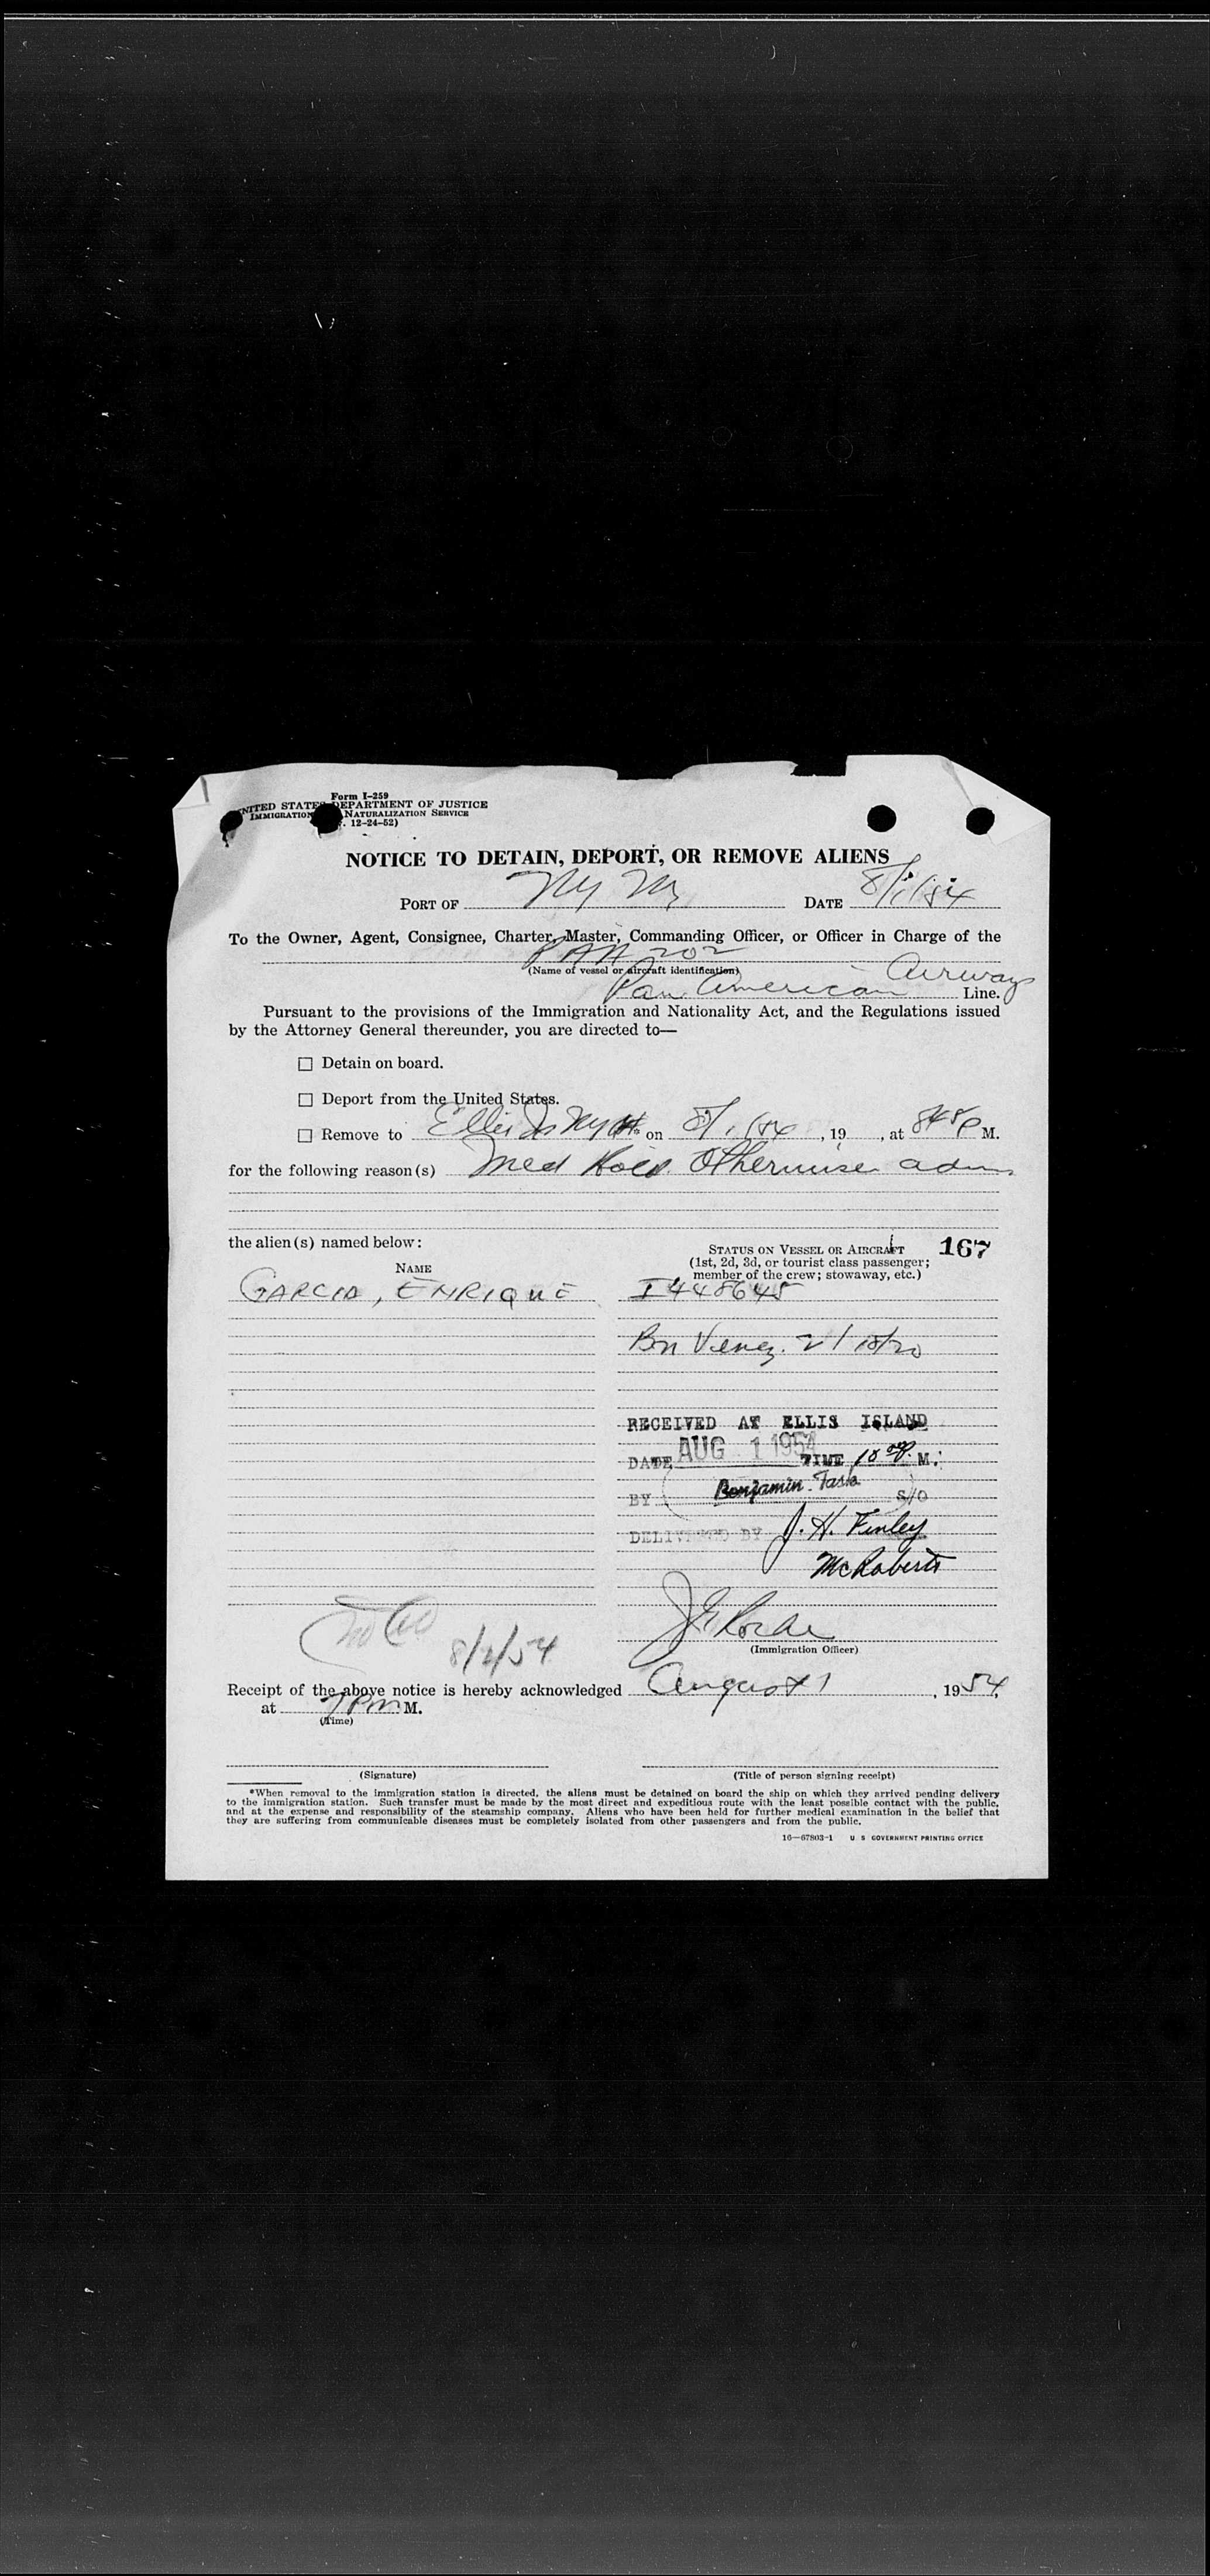 Form I-259
UNITED STATES DEPARTMENT OF JUSTICE
IMMIGRATION NATURALIZATION SERVICE
12-24-52)
NOTICE TO DETAIN, DEPORT, OR REMOVE ALIENS
PORT OF NY NY DATE 8/1/54
To the Owner, Agent, Consignee, Charter, Master, Commanding Officer, or Officer in Charge of the
PAA 202
(Name of vessel or aircraft identification)
Pan American Airways Line.
Pursuant to the provisions of the Immigration and Nationality Act, and the Regulations issued
by the Attorney General thereunder, you are directed to—
☐ Detain on board.
☐ Deport from the United States.
☐ Remove to Ellis Is NYH on 8/1/54, 19 , at 845P M.
for the following reason(s) Med Hold Otherwise adm
the alien(s) named below:
STATUS ON VESSEL OR AIRCRAFT 167
(1st, 2d, 3d, or tourist class passenger;
member of the crew; stowaway, etc.)
NAME
GARCIA, ENRIQUE I448645
Bn Venez. 2/18/20
RECEIVED AT ELLIS ISLAND
DATE AUG 1 1954 TIME 10 P. M.
BY Benjamin S/O
DELIVERED BY J. H. Finley
McRoberts
(Immigration Officer)
8/2/54
Receipt of the above notice is hereby acknowledged August 1, 1954,
at 7 PM M.
(Time)
(Signature) (Title of person signing receipt)
*When removal to the immigration station is directed, the aliens must be detained on board the ship on which they arrived pending delivery
to the immigration station. Such transfer must be made by the most direct and expeditious route with the least possible contact with the public,
and at the expense and responsibility of the steamship company. Aliens who have been held for further medical examination in the belief that
they are suffering from communicable diseases must be completely isolated from other passengers and from the public.
16—67803-1 U. S. GOVERNMENT PRINTING OFFICE